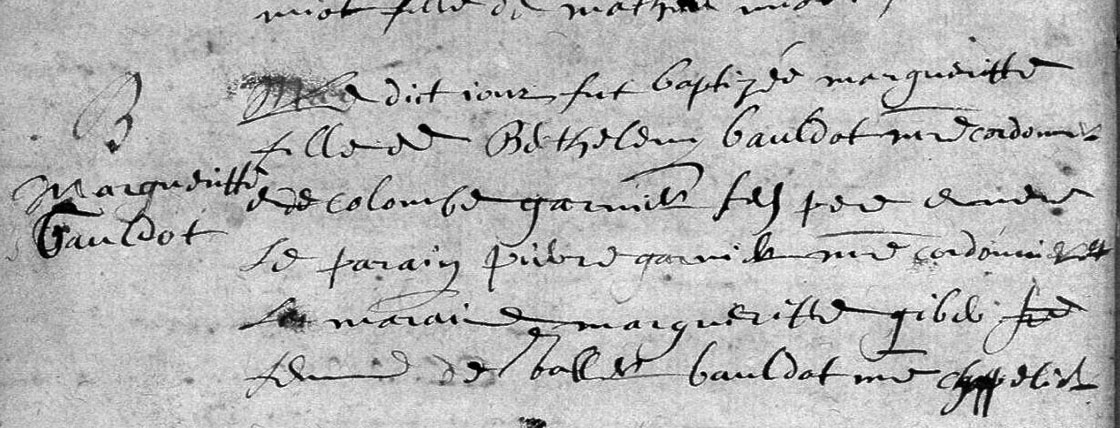 fille de
B
Margueritte
bauldot
le dict iour fut baptizée margueritte
fille de Bethelemy bauldot me cordonnier
et de colombe garnier ses pere et mere
Le parain pierre garnier me cordonnier et
La maraine margueritte
femme de bauldot me